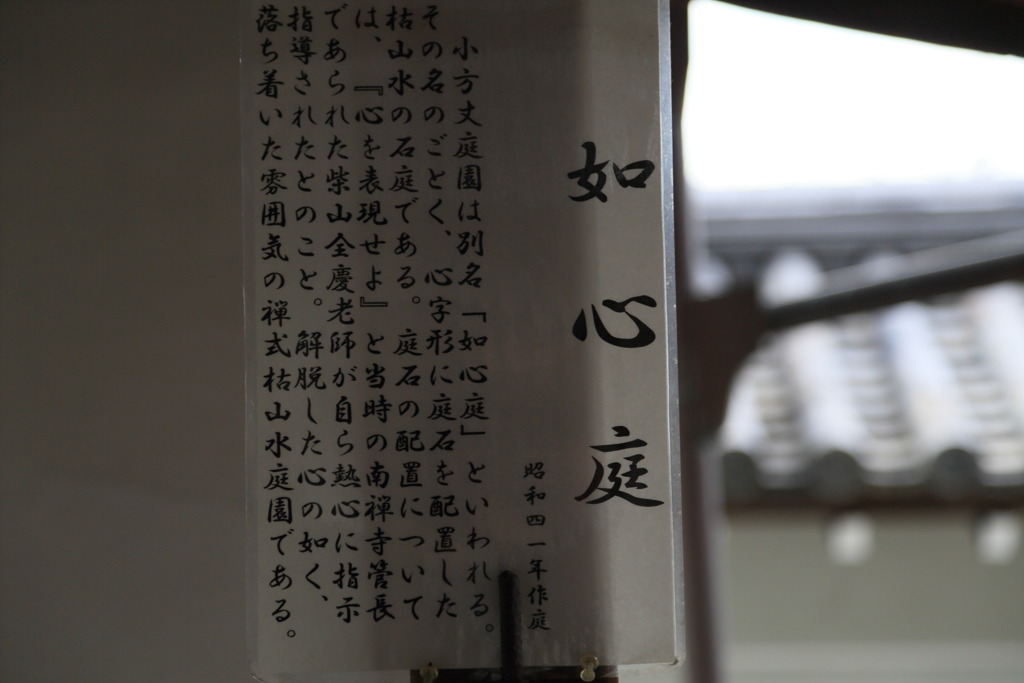 如心庭
昭和四一年作庭
小方丈庭園は別名「如心庭」といわれる。
その名のごとく、心字形に庭石を配置した
枯山水の石庭である。庭石の配置について
は、『心を表現せよ』と当時の南禅寺管長
であられた柴山全慶老師が自ら熱心に指示
指導されたとのこと。解脱した心の如く、
落ち着いた雰囲気の禅式枯山水庭園である。